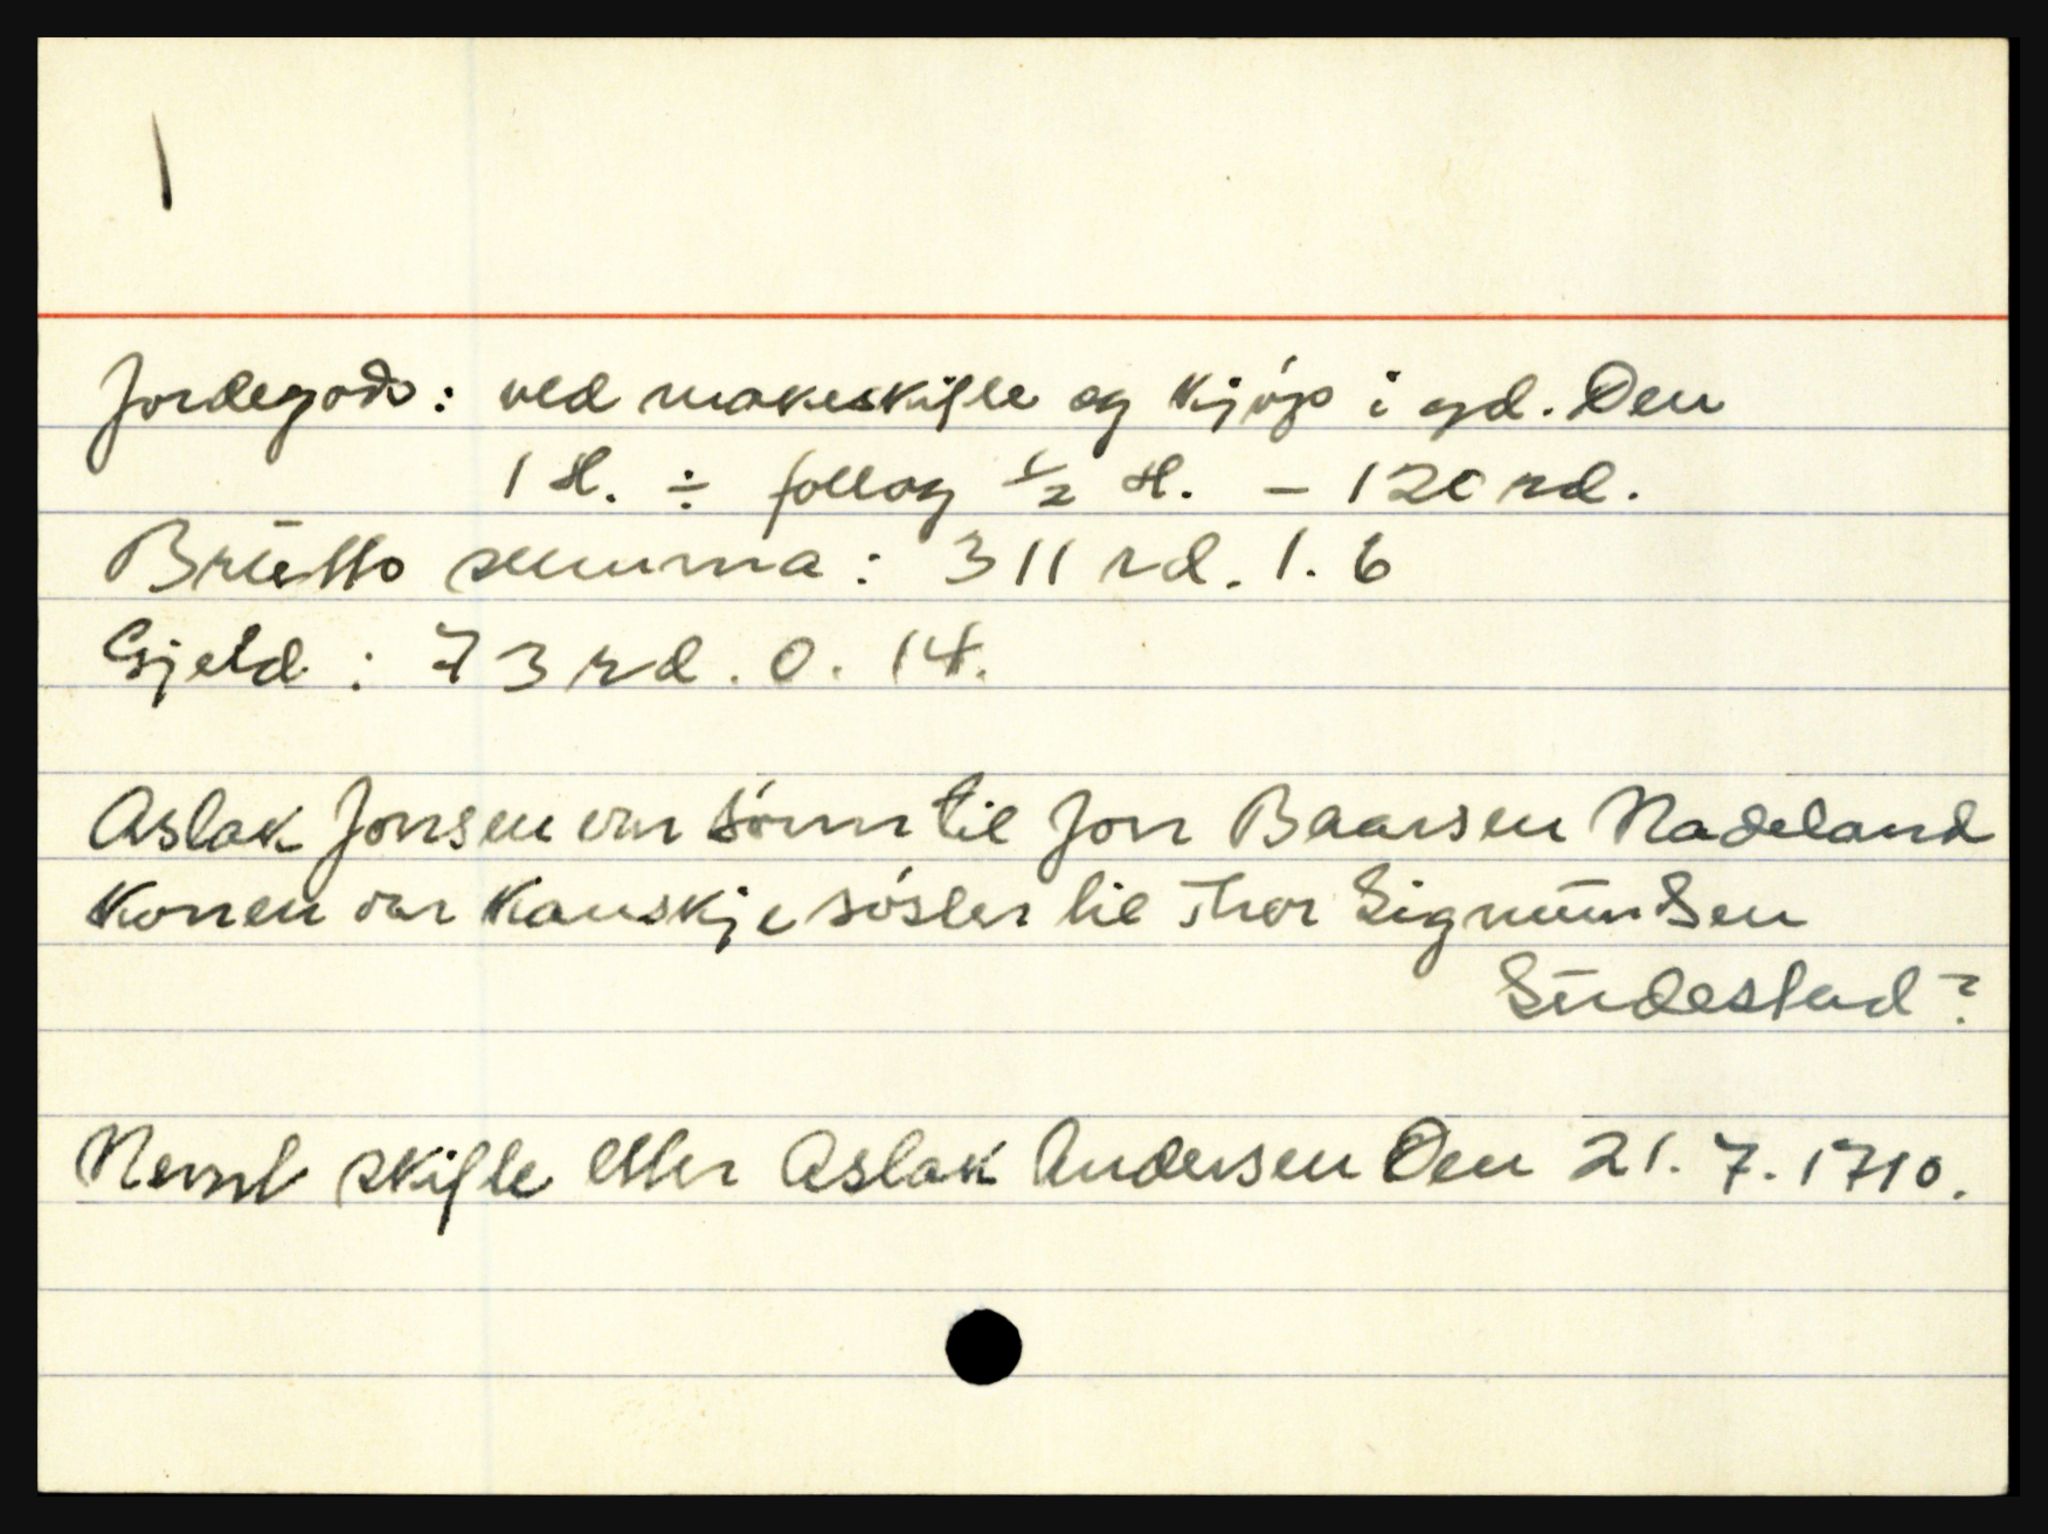 Jordegods: ved makeskifte og kjóp i gd. Den
1 H. ÷ follog ½ H. – 120 rd.
Brutto summa: 311 rd. 1. 6
Gjeld: 73 rd. 0. 14.
Aslak Jonsen var sónn til Jon Baarsen Nadeland
Konen var kanskje sóster til Thor Sigmundsen
Sudestad?
Nevnt skifte etter Aslak Andersen Den 21. 7. 1710.